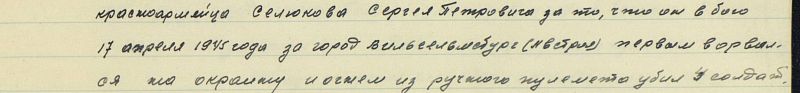 красноармейца Селюкова Сергея Петровича за то, что он в бою
17 апреля 1945 года за город Вильгельмсбург (Австрия) первым ворвал-
ся на окраину и огнем из ручного пулемета убил 9 солдат,